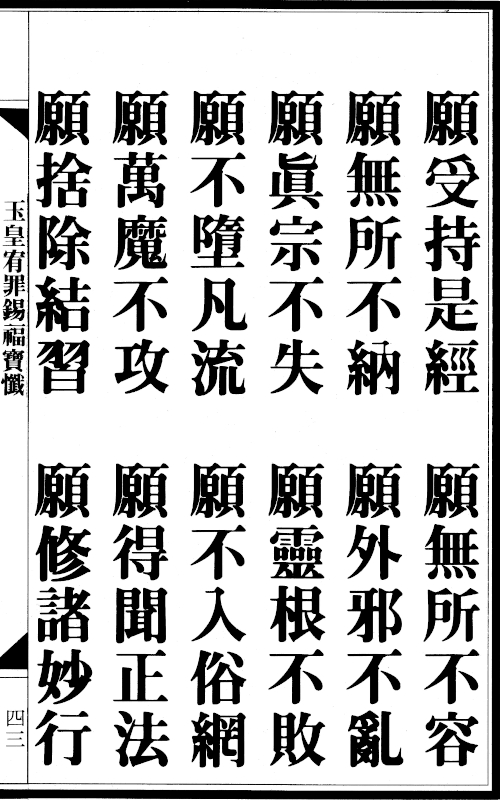 願受持是經　願無所不容
願無所不納　願外邪不亂
願眞宗不失　願靈根不敗
願不墮凡流　願不入俗網
願萬魔不攻　願得聞正法
願捨除結習　願修諸妙行
玉皇宥罪錫福寶懺
四三